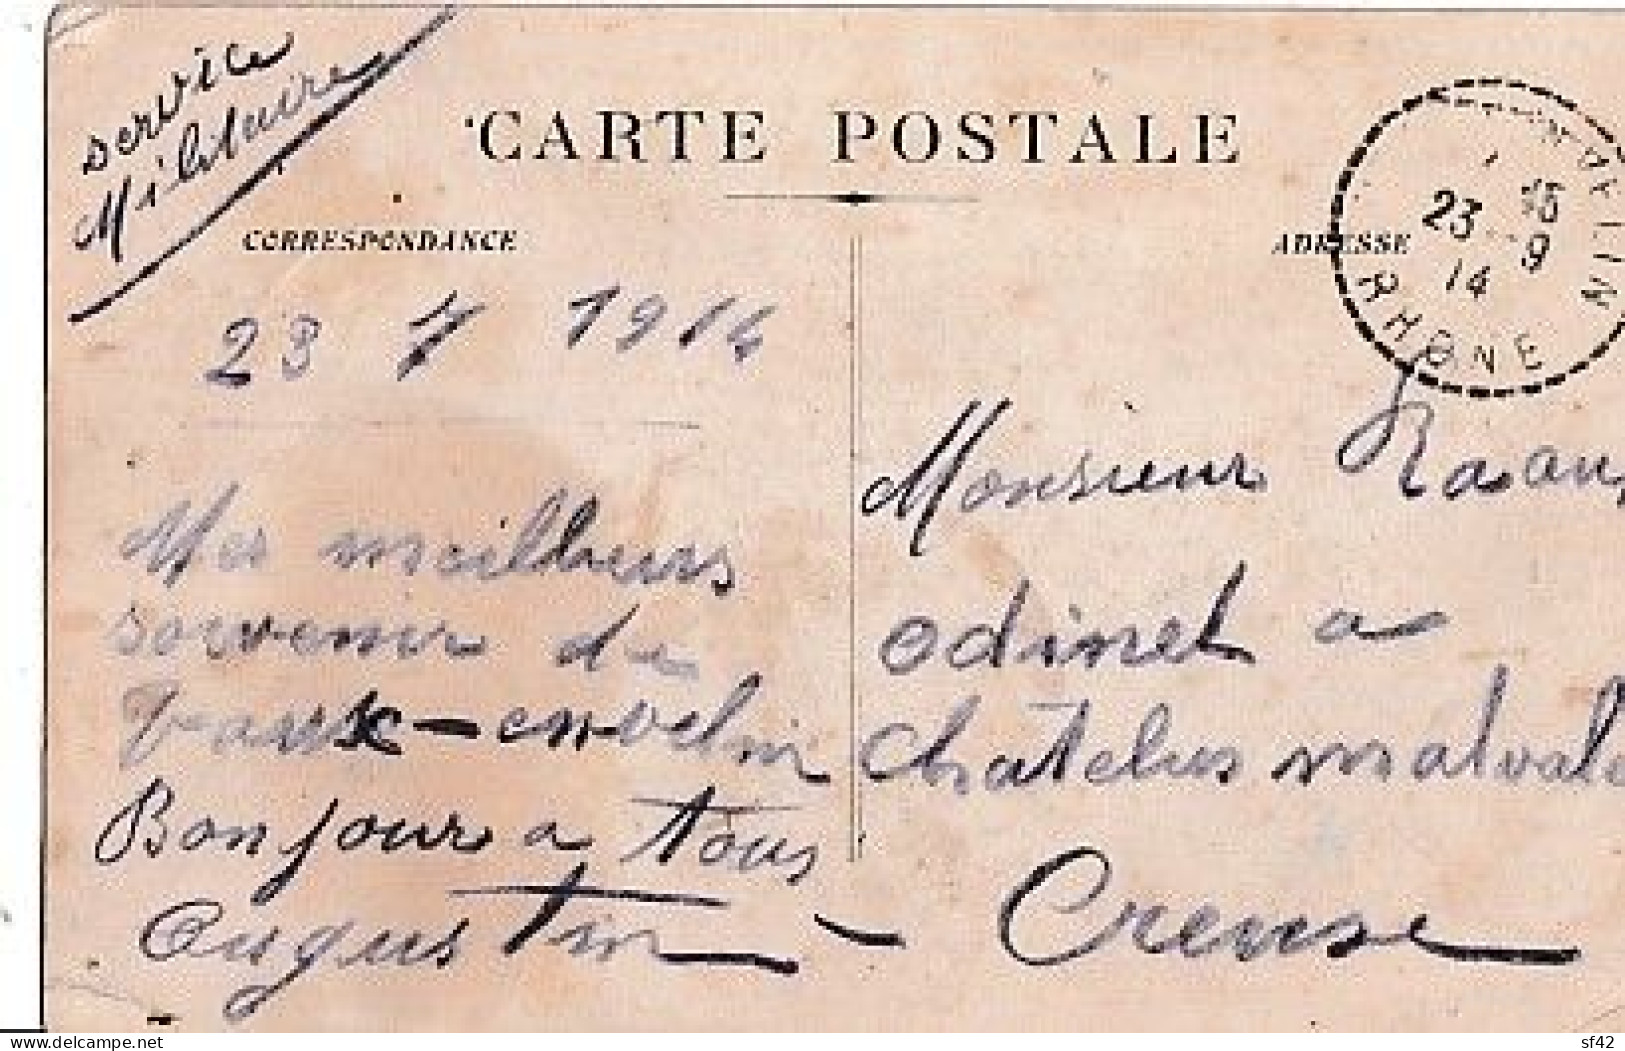 service
Militaire
CARTE POSTALE
CORRESPONDANCE
ADRESSE
VAULIN
RHONE
23
9
14
23 7 1914
Mes meilleurs
souvenir de
Vaux-en velin
Bonjour a tous
Augustin
Monsieur
odinet a
Chatelus malvale
Creuse
delcampe.net
sf42